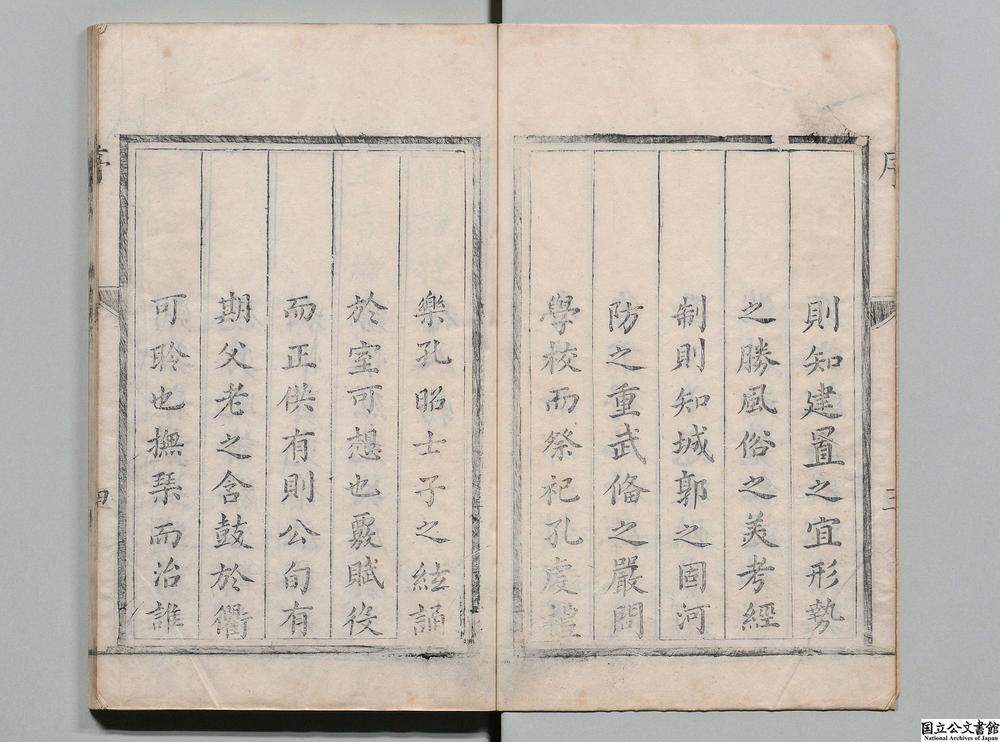 則知建置之宜形勢
之勝風俗之美考經
制則知城郭之固河
防之重武俻之嚴問
學校而祭祀孔虔禮
樂孔昭士子之絃誦
於室可想也覈賦役
而正供有則公旬有
期父老之含鼓於衢
可聆也撫琴而治誰
序
三
序
四
国立公文書館
National Archives of Japan